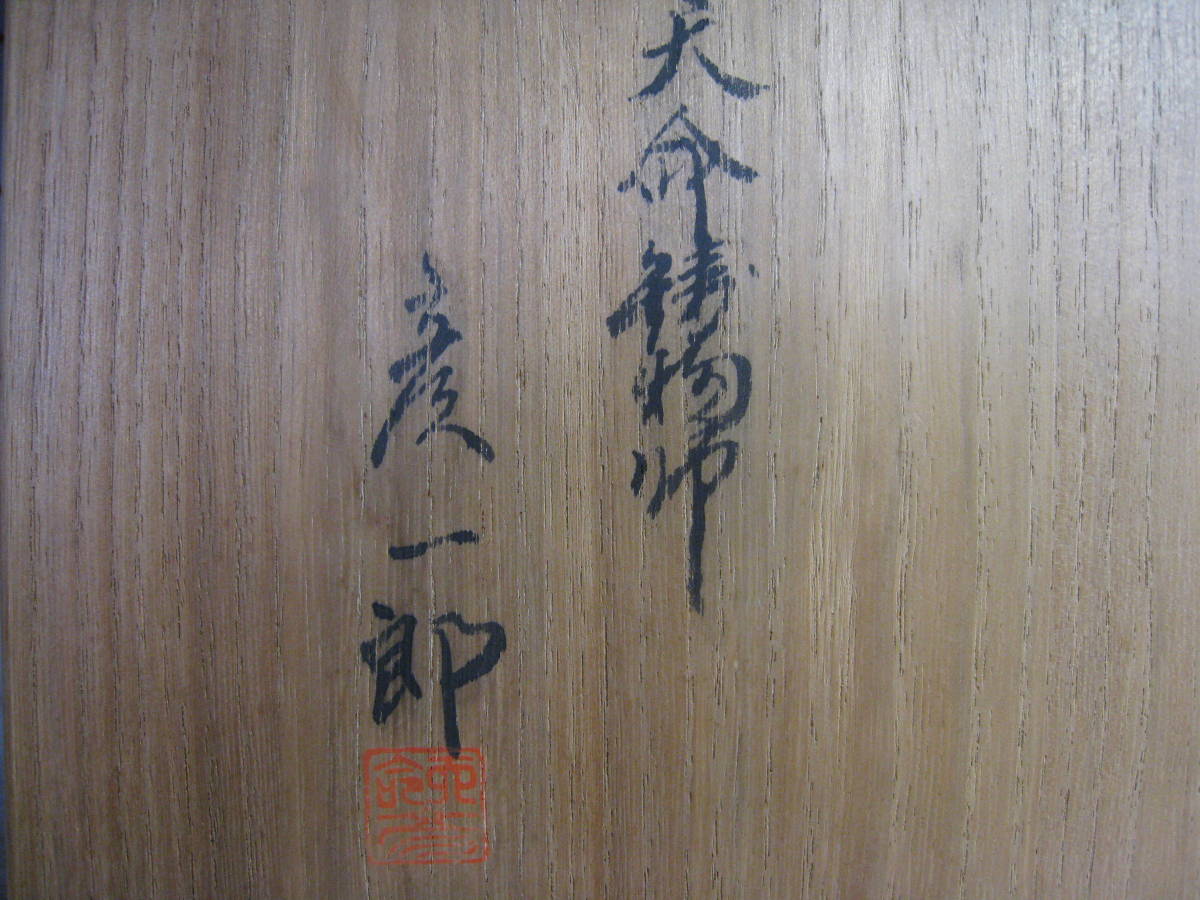 天命鋳物師
彦一郎